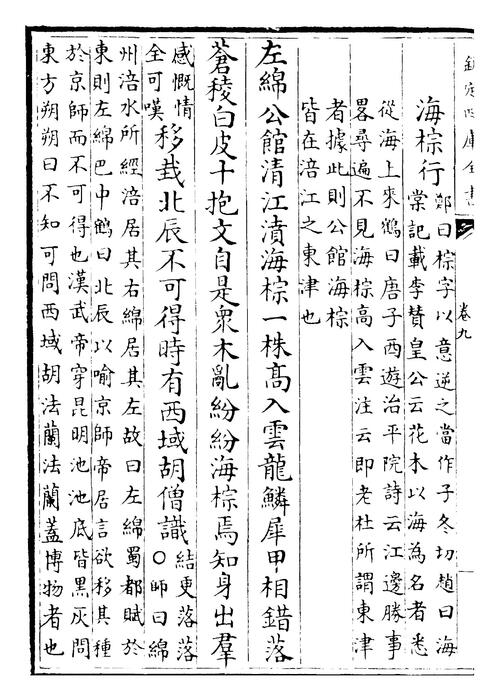 欽定四庫全書
卷九
海棕行
鄭曰棕字以意逆之當作子冬切趙曰海
棠記載李贊皇公云花木以海為名者悉
從海上來鶴曰唐子西遊治平院詩云江邊勝事
畧尋遍不見海棕高入雲注云即老杜所謂東津
者據此則公館海棕
皆在涪江之東津也
左綿公館清江濆海棕一株高入雲龍鱗犀甲相錯落
蒼稜白皮十抱文自是衆木亂紛紛海棕焉知身出羣
感慨情
全可嘆
移栽北辰不可得時有西域胡僧識
結更落落
○師曰綿
州涪水所經涪居其右綿居其左故曰左綿蜀都賦於
東則左綿巴中鶴曰北辰以喻京師帝居言欲移其種
於京師而不可得也漢武帝穿昆明池池底皆黑灰問
東方朔朔曰不知可問西域胡法蘭法蘭蓋博物者也